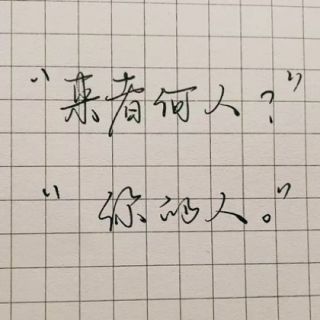 “来者何人？”
“你的人。”